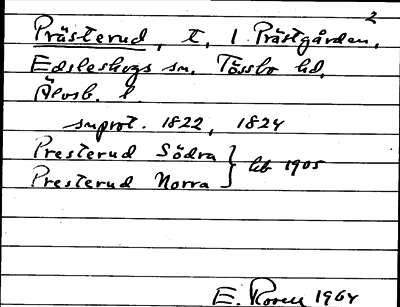 2
Prästerud, t. 1 Prästgården,
Edsleskogs sn. Tössbo hd,
Älvsb. l
snprot. 1822, 1824
Presterud Södra } hb 1905
Presterud Norra
E. Rosell 1964